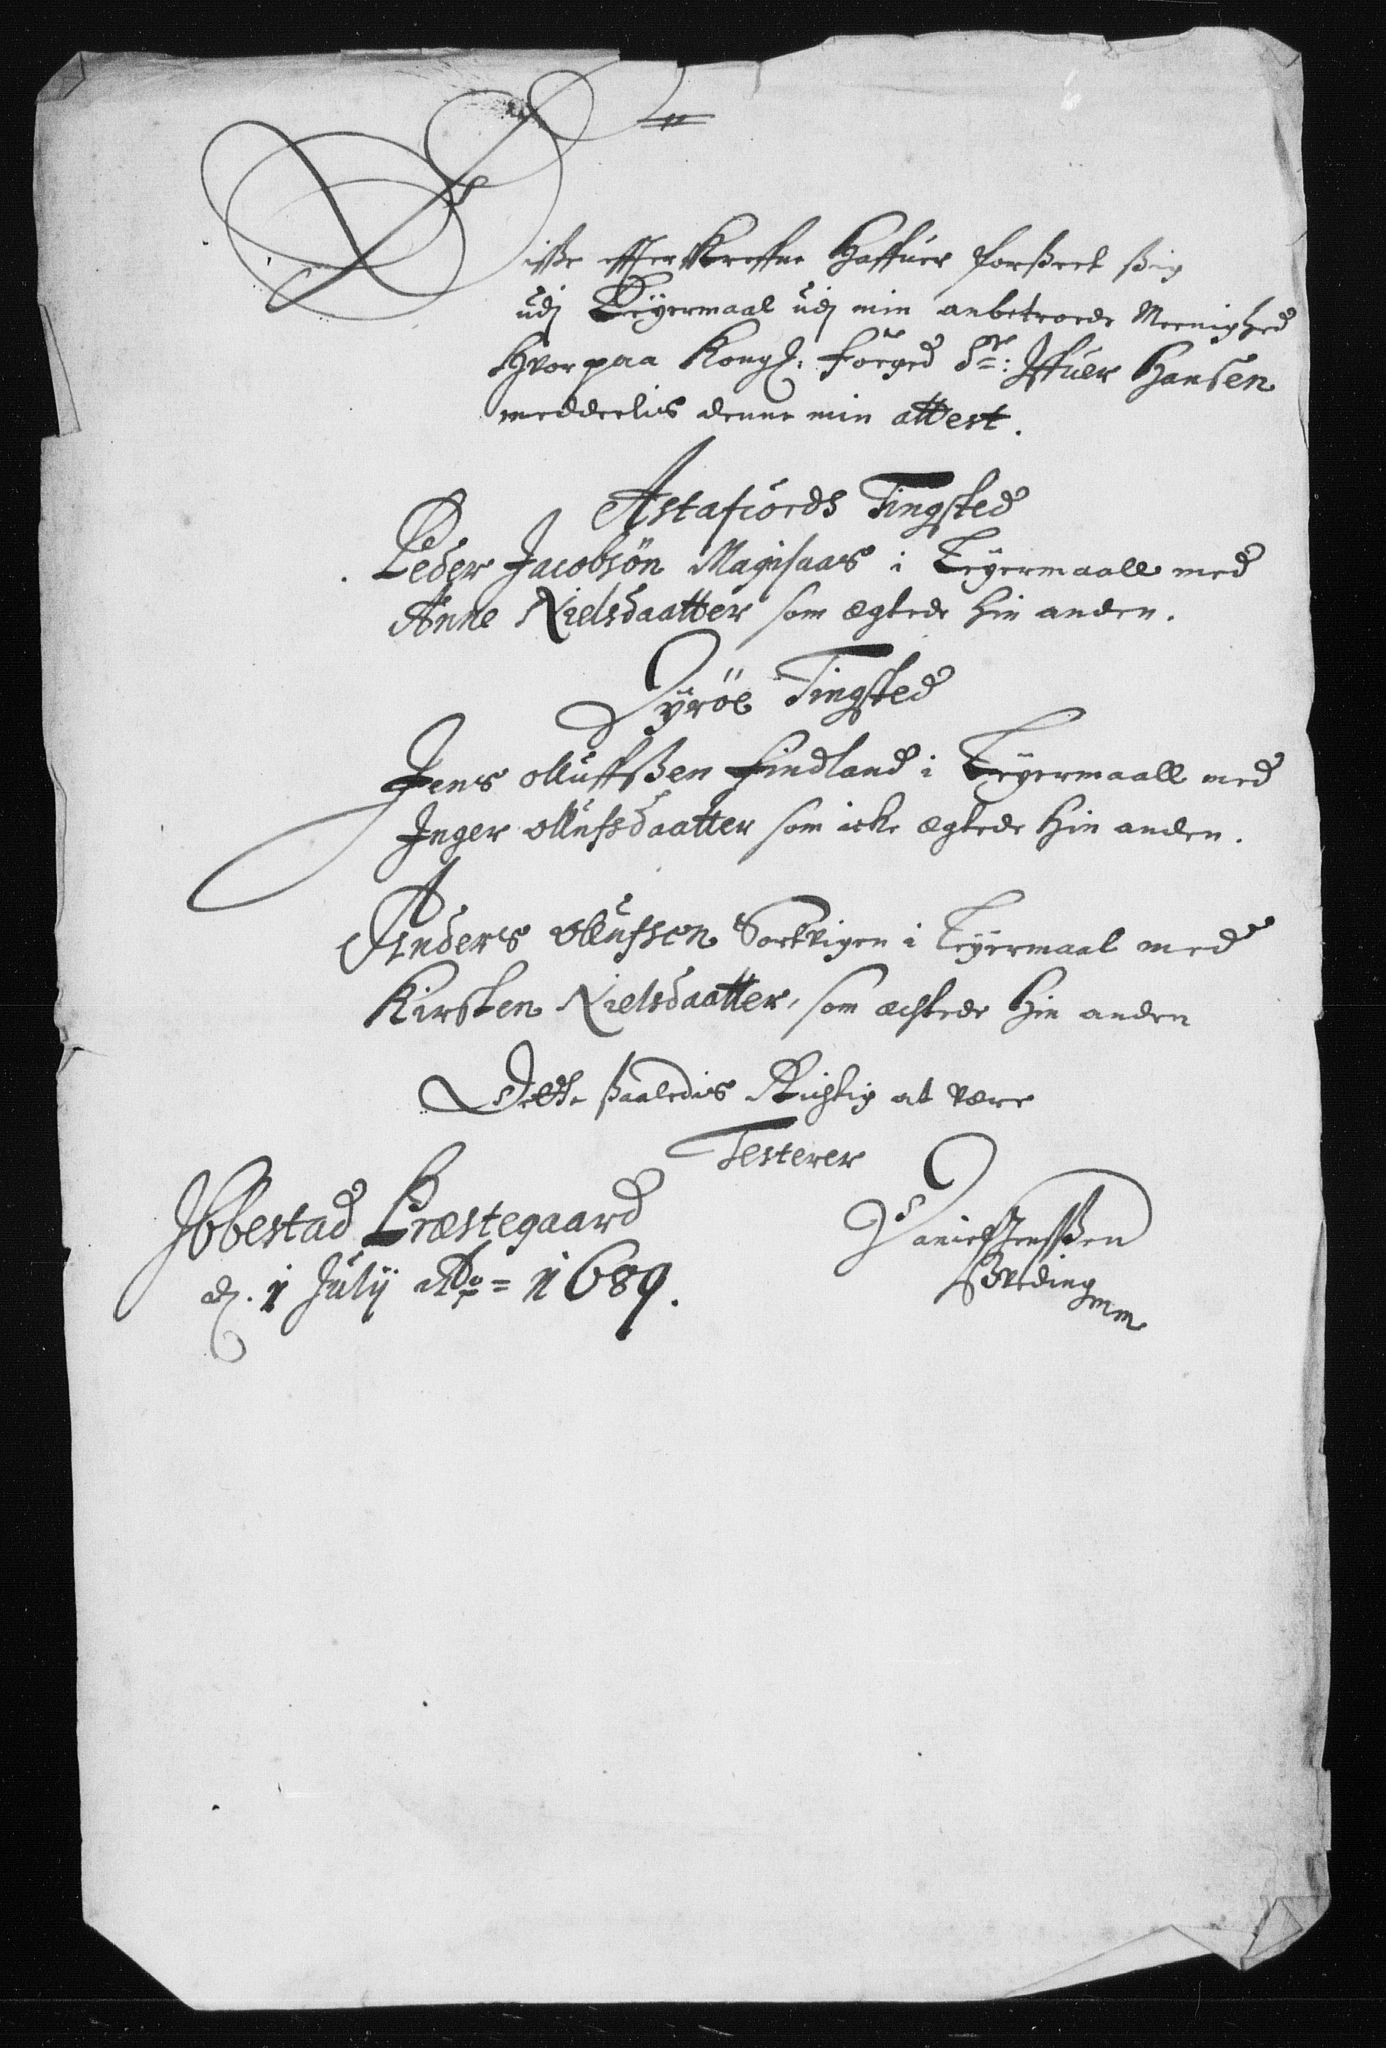 Disse effterskreffne Haffuer forßeet ßig
udj Leÿermaal udj min anbetroede Meenighed
Hvorpaa Kongl: foeged Sr: Iffuer Hansen
meddeelis denne min attest.
Astafiords Tingsted
Peder Jacobsøn i Leÿermaall med
Anne Nielsdaatter som ægtede hin anden.
Dÿrøe Tingsted
Jens olluffßen Findland i Leÿermaall med
Inger ollufsdaatter som icke ægtede hin anden.
Anders ollufsen i Leÿermaal med
Kirsten Nielsdaatter, som achtede hin anden
Dette ßaaledis Richtig at være
Testerer
Ibbestad Præstegaard
d. 1 Julÿ Ao = 1689.
Daniel Jenßßen
mm